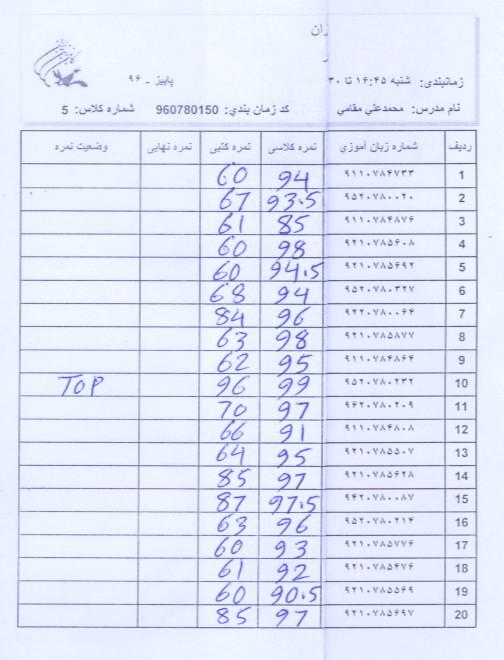 ران
زمانبندی: شنبه ۱۶:۴۵ تا ۳۰ پاییز ـ ۹۶
نام مدرس: محمدعلي مقامي کد زمان بندي: 960780150 شماره کلاس: 5
ردیف شماره زبان آموزي نمره کلاسی نمره کتبی نمره نهایی وضعیت نمره
1 ۹۱۱۰۷۸۴۷۳۳ 94 60
2 ۹۵۲۰۷۸۰۰۲۰ 93.5 67
3 ۹۱۱۰۷۸۴۸۷۶ 85 61
4 ۹۲۱۰۷۸۵۶۰۸ 98 60
5 ۹۲۱۰۷۸۵۶۹۲ 94.5 60
6 ۹۵۲۰۷۸۰۳۲۷ 94 68
7 ۹۲۲۰۷۸۰۰۶۴ 96 84
8 ۹۲۱۰۷۸۵۸۷۷ 98 63
9 ۹۱۱۰۷۸۴۸۶۴ 95 62
10 ۹۵۲۰۷۸۰۲۳۲ 99 96 TOP
11 ۹۶۲۰۷۸۰۲۰۹ 97 70
12 ۹۱۱۰۷۸۴۸۰۸ 91 66
13 ۹۲۱۰۷۸۵۵۰۷ 95 64
14 ۹۲۱۰۷۸۵۶۲۸ 97 85
15 ۹۴۲۰۷۸۰۰۸۷ 97.5 87
16 ۹۵۲۰۷۸۰۲۱۴ 96 63
17 ۹۲۱۰۷۸۵۷۷۶ 93 60
18 ۹۲۱۰۷۸۵۴۷۶ 92 61
19 ۹۲۱۰۷۸۵۵۶۹ 90.5 60
20 ۹۲۱۰۷۸۵۶۹۷ 97 85